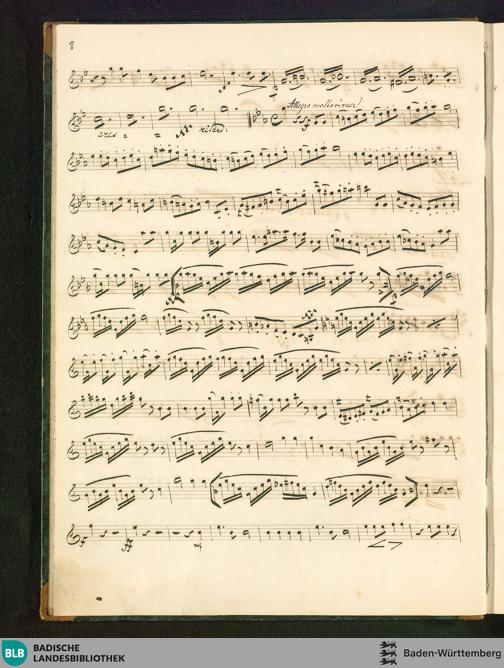 8
Allegro molto vivace
BLB
BADISCHE
LANDESBIBLIOTHEK
Baden-Württemberg